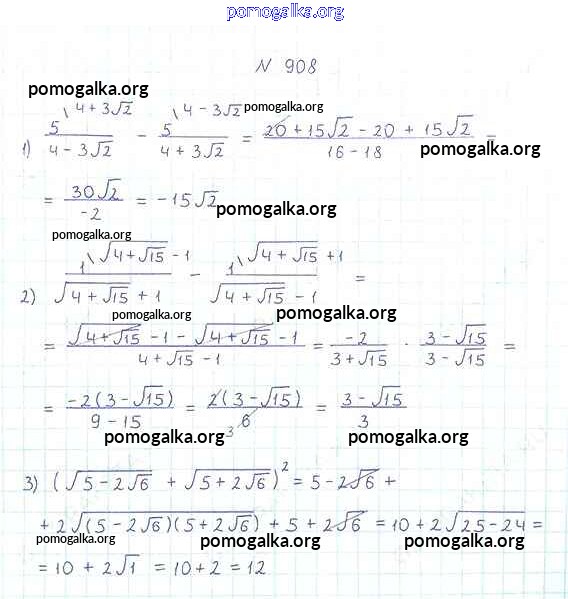 pomogalka.org
N 908
pomogalka.org
1) 5\4+3√2 / (4 - 3√2) - 5\4-3√2 / (4 + 3√2) = (20 + 15√2 - 20 + 15√2) / (16 - 18) =
pomogalka.org
pomogalka.org
= 30√2 / -2 = -15√2
pomogalka.org
pomogalka.org
2) 1\√(4+√15) - 1 / (√(4+√15) + 1) - 1\√(4+√15) + 1 / (√(4+√15) - 1) =
pomogalka.org
pomogalka.org
= (√(4+√15) - 1 - √(4+√15) - 1) / (4+√15 - 1) = -2 / (3+√15) · (3 - √15) / (3 - √15) =
= -2(3 - √15) / (9 - 15) = 2(3 - √15) / 6 3 = (3 - √15) / 3
pomogalka.org
pomogalka.org
3) (√(5 - 2√6) + √(5 + 2√6))² = 5 - 2√6 +
+ 2√((5 - 2√6)(5 + 2√6)) + 5 + 2√6 = 10 + 2√(25 - 24) =
pomogalka.org
pomogalka.org
pomogalka.org
= 10 + 2√1 = 10 + 2 = 12